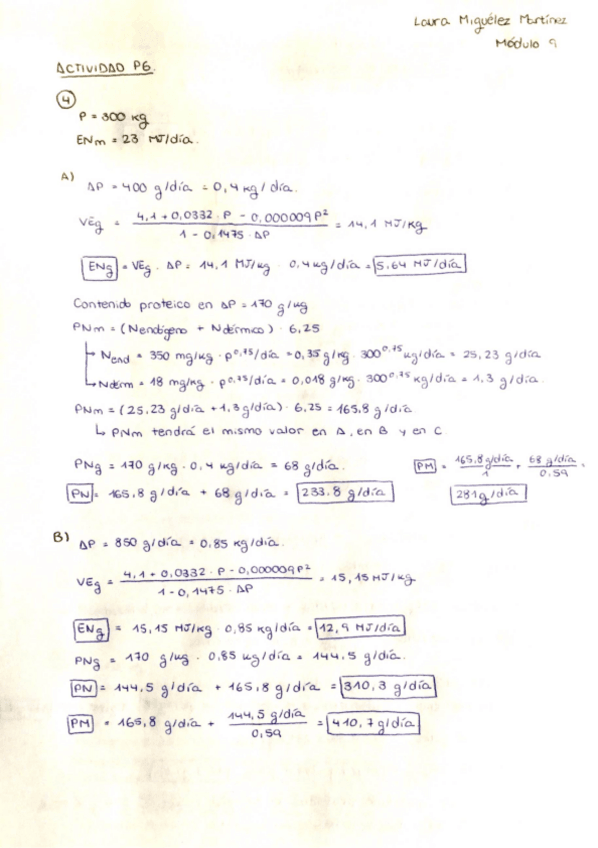 Laura Miguélez Martínez
Módulo 9
ACTIVIDAD P6.
④
P = 300 kg
ENm = 23 MJ/día.
A)
ΔP = 400 g/día = 0,4 kg/día.
VEg = (4,1 + 0,0332 · P - 0,000009 P²) / (1 - 0,1475 · ΔP) = 14,1 MJ/kg
ENg = VEg · ΔP = 14,1 MJ/kg · 0,4 kg/día = 5,64 MJ/día
Contenido proteico en ΔP = 170 g/kg
PNm = (Nendógeno + Ndérmico) · 6,25
Nend = 350 mg/kg · P^0,75/día = 0,35 g/kg · 300^0,75 kg/día = 25,23 g/día
Nderm = 18 mg/kg · P^0,75/día = 0,018 g/kg · 300^0,75 kg/día = 1,3 g/día.
PNm = (25,23 g/día + 1,3 g/día) · 6,25 = 165,8 g/día
↳ PNm tendrá el mismo valor en A, en B y en C
PNg = 170 g/kg · 0,4 kg/día = 68 g/día.
PN = 165,8 g/día + 68 g/día = 233,8 g/día
PM = 165,8 g/día / 1 + 68 g/día / 0,59 =
281 g/día
B)
ΔP = 850 g/día = 0,85 kg/día.
VEg = (4,1 + 0,0332 · P - 0,000009 P²) / (1 - 0,1475 · ΔP) = 15,15 MJ/kg
ENg = 15,15 MJ/kg · 0,85 kg/día = 12,9 MJ/día
PNg = 170 g/kg · 0,85 kg/día = 144,5 g/día.
PN = 144,5 g/día + 165,8 g/día = 310,3 g/día
PM = 165,8 g/día + 144,5 g/día / 0,59 = 410,7 g/día